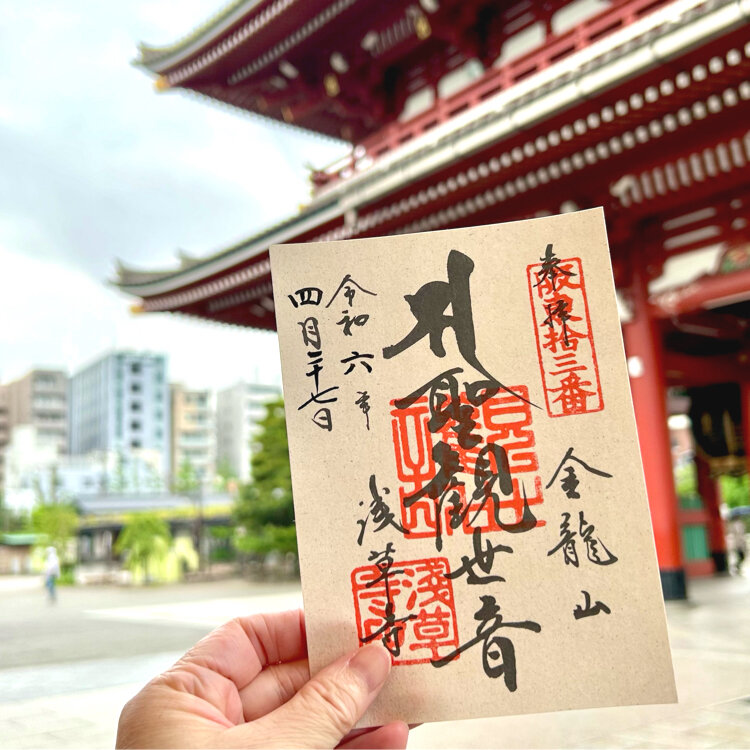 奉拝
坂東拾三番
金龍山
聖観世音
浅草寺
浅草寺
令和六年
四月二十七日